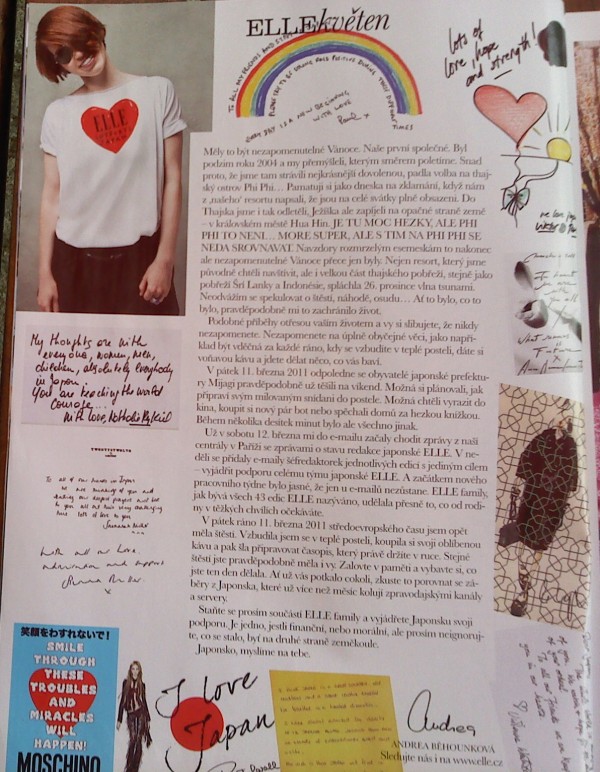 ELLE květen
ELLE
TO ALL MY FRIENDS AND
EVERY DAY IS A NEW BEGINNING
WITH LOVE
TIMES
lots of
love, hope
and strength!
Měly to být nezapomenutelné Vánoce. Naše první společné. Byl
podzim roku 2004 a my přemýšleli, kterým směrem poletíme. Snad
proto, že jsme tam strávili nejkrásnější dovolenou, padla volba na thaj-
ský ostrov Phi Phi… Pamatuji si jako dneska na zklamání, když nám
z ‚našeho' resortu napsali, že jsou na celé svátky plně obsazeni. Do
Thajska jsme i tak odletěli, Ježíška ale zapíjeli na opačné straně země
– v královském městě Hua Hin. JE TU MOC HEZKY, ALE PHI
PHI TO NENI… MORE SUPER, ALE S TIM NA PHI PHI SE
NEDA SROVNAVAT. Navzdory rozmrzelým esemeskám to nakonec
ale nezapomenutelné Vánoce přece jen byly. Nejen resort, který jsme
původně chtěli navštívit, ale i velkou část thajského pobřeží, stejně jako
pobřeží Šrí Lanky a Indonésie, spláchla 26. prosince vlna tsunami.
Neodvážím se spekulovat o štěstí, náhodě, osudu… Ať to bylo, co to
bylo, pravděpodobně mi to zachránilo život.
Podobné příběhy otřesou vaším životem a vy si slibujete, že nikdy
nezapomenete. Nezapomenete na úplně obyčejné věci, jako napří-
klad být vděčná za každé ráno, kdy se vzbudíte v teplé posteli, dáte si
voňavou kávu a jdete dělat něco, co vás baví.
V pátek 11. března 2011 odpoledne se obyvatelé japonské prefektu-
ry Mijagi pravděpodobně už těšili na víkend. Možná si plánovali, jak
připraví svým milovaným snídani do postele. Možná chtěli vyrazit do
kina, koupit si nový pár bot nebo spěchali domů za hezkou knížkou.
Během několika desítek minut bylo ale všechno jinak.
Už v sobotu 12. března mi do e-mailu začaly chodit zprávy z naší
centrály v Paříži se zprávami o stavu redakce japonské ELLE. V ne-
děli se přidaly e-maily šéfredaktorek jednotlivých edicí s jediným cílem
– vyjádřit podporu celému týmu japonské ELLE. A začátkem nového
pracovního týdne bylo jasné, že jen u e-mailů nezůstane. ELLE family,
jak bývá všech 43 edic ELLE nazýváno, udělala přesně to, co od rodi-
ny v těžkých chvílích očekáváte.
V pátek ráno 11. března 2011 středoevropského času jsem opět
měla štěstí. Vzbudila jsem se v teplé posteli, koupila si svoji oblíbenou
kávu a pak šla připravovat časopis, který právě držíte v ruce. Stejné
štěstí jste pravděpodobně měla i vy. Zalovte v paměti a vybavte si, co
jste ten den dělala. Ať už vás potkalo cokoli, zkuste to porovnat se zá-
běry z Japonska, které už více než měsíc kolují zpravodajskými kanály
a servery.
Staňte se prosím součástí ELLE family a vyjádřete Japonsku svoji
podporu. Je jedno, jestli finanční, nebo morální, ale prosím neignoruj-
te, co se stalo, byť na druhé straně zeměkoule.
Japonsko, myslíme na tebe.
My thoughts are with
everyone, women, men,
children, absolutely everybody
in Japan.
You are teaching the world
courage...
With love, Nathalie Rykiel
TWENTY8TWELVE
To all of our friends in Japan
we are thinking of you and
with all our love,
admiration and support
x
笑顔をわすれないで!
SMILE
THROUGH
THESE
TROUBLES
AND
MIRACLES
WILL
HAPPEN!
MOSCHINO
I love
Japan
Andrea
ANDREA BĚHOUNKOVÁ
Sledujte nás i na www.elle.cz